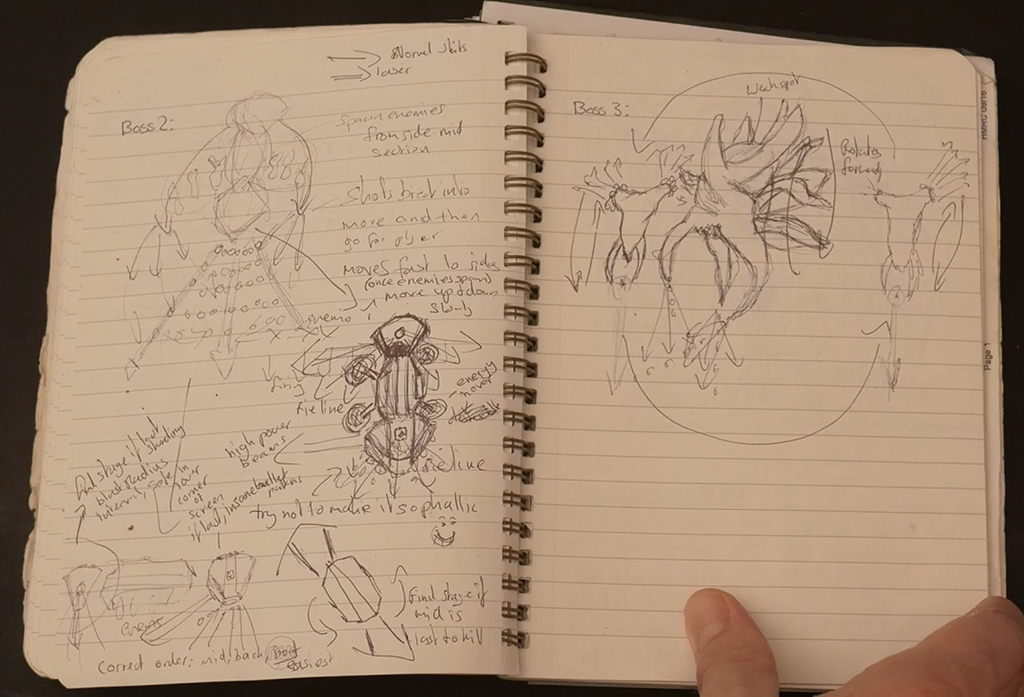 Normal shots
laser
Boss 2:
spawn enemies
from side mid
section
Shots break into
more and then
go for player
moves fast to side
(once enemies spawn
move up & down
slowly
firing
fire line
energy
mover
high power
beams
fire line
final stage if last
standing
blast radius
in lower
corner
of
screen
if last, insane bullet
patterns
try not to make it so phallic
final stage if
mid is
last to kill
Correct order: mid, back, front
easiest
Boss 3:
Weak spot
Rotates
forward
Page 1